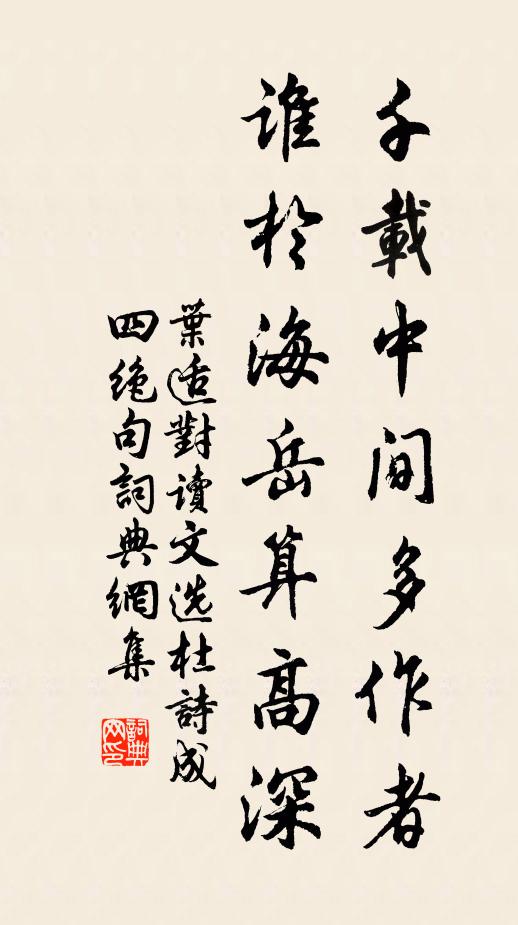 千載中間多作者
誰於海岳算高深
葉适對讀文选杜詩成
四絶句詞典網集
詞典网印